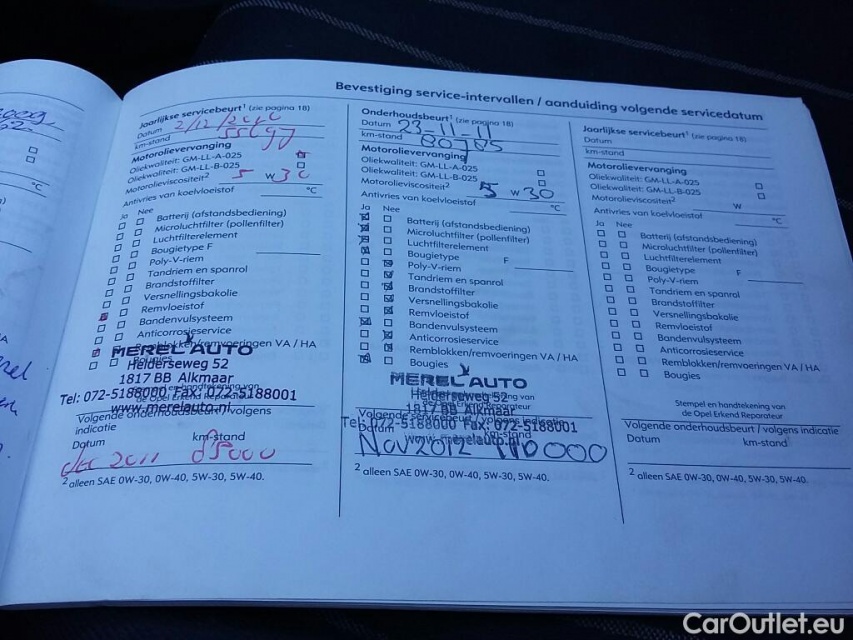 Bevestiging service-intervallen / aanduiding volgende servicedatum
Jaarlijkse servicebeurt¹ (zie pagina 18)
Datum 2/12/2010
km-stand
Motorolieverversing
Oliekwaliteit: GM-LL-A-025
Oliekwaliteit: GM-LL-B-025
Motorolieviscositeit² 5 W 30
Antivries van koelvloeistof °C
Ja Nee
Batterij (afstandsbediening)
Microluchtfilter (pollenfilter)
Luchtfilterelement
Bougietype F
Poly-V-riem
Tandriem en spanrol
Brandstoffilter
Versnellingsbakolie
Remvloeistof
Bandenvulsysteem
Anticorrosieservice
Remblokken/remvoeringen VA / HA
Bougies
MEREL AUTO
Helderseweg 52
1817 BB Alkmaar
Tel: 072-5188000 Fax: 072-5188001
www.merelauto.nl
Volgende onderhoudsbeurt / volgens
indicatie
Datum km-stand
dec 2011 85000
² alleen SAE 0W-30, 0W-40, 5W-30, 5W-40.
Onderhoudsbeurt¹ (zie pagina 18)
Datum 23-11-11
km-stand 80785
Motorolieverversing
Oliekwaliteit: GM-LL-A-025
Oliekwaliteit: GM-LL-B-025
Motorolieviscositeit² 5 W 30
Antivries van koelvloeistof °C
Ja Nee
Batterij (afstandsbediening)
Microluchtfilter (pollenfilter)
Luchtfilterelement
Bougietype F
Poly-V-riem
Tandriem en spanrol
Brandstoffilter
Versnellingsbakolie
Remvloeistof
Bandenvulsysteem
Anticorrosieservice
Remblokken/remvoeringen VA / HA
Bougies
MEREL AUTO
Helderseweg 52
1817 BB Alkmaar
Tel: 072-5188000 Fax: 072-5188001
www.merelauto.nl
Volgende servicebeurt / volgens indicatie
Datum km-stand
Nov 2012 110000
² alleen SAE 0W-30, 0W-40, 5W-30, 5W-40.
Jaarlijkse servicebeurt¹ (zie pagina 18)
Datum
km-stand
Motorolieverversing
Oliekwaliteit: GM-LL-A-025
Oliekwaliteit: GM-LL-B-025
Motorolieviscositeit² W
Antivries van koelvloeistof °C
Ja Nee
Batterij (afstandsbediening)
Microluchtfilter (pollenfilter)
Luchtfilterelement
Bougietype F
Poly-V-riem
Tandriem en spanrol
Brandstoffilter
Versnellingsbakolie
Remvloeistof
Bandenvulsysteem
Anticorrosieservice
Remblokken/remvoeringen VA / HA
Bougies
Stempel en handtekening van
de Opel Erkend Reparateur
Volgende onderhoudsbeurt / volgens indicatie
Datum km-stand
² alleen SAE 0W-30, 0W-40, 5W-30, 5W-40.
CarOutlet.eu